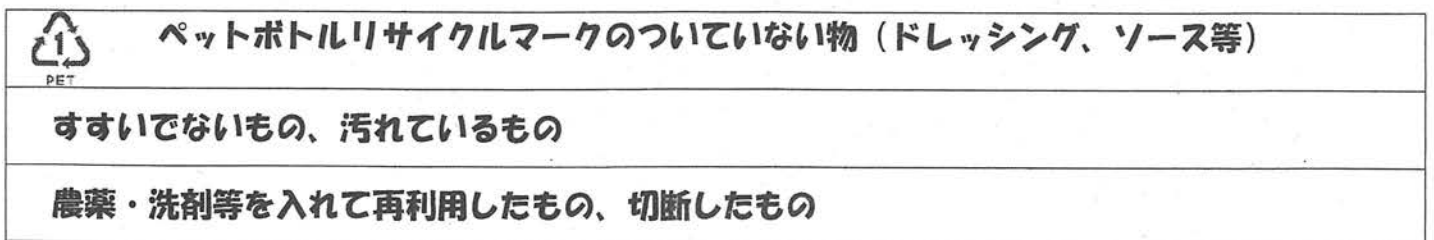 1
PET
ペットボトルリサイクルマークのついていない物（ドレッシング、ソース等）
すすいでないもの、汚れているもの
農薬・洗剤等を入れて再利用したもの、切断したもの